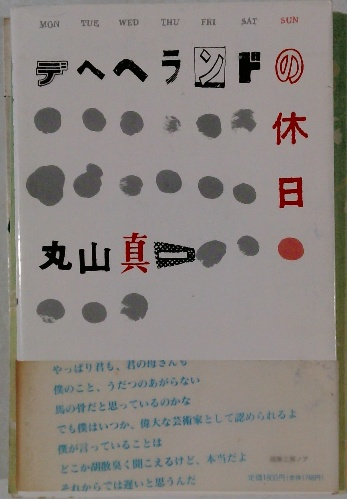 MON TUE WED THU FRI SAT SUN
デヘヘランドの休日
丸山真一
やっぱり君も、君の母さんも
僕のこと、うだつのあがらない
馬の骨だと思っているのかな
でも僕はいつか、偉大な芸術家として認められるよ
僕が言っていることは
どこか胡散臭く聞こえるけど、本当だよ
それからでは遅いと思うんだ